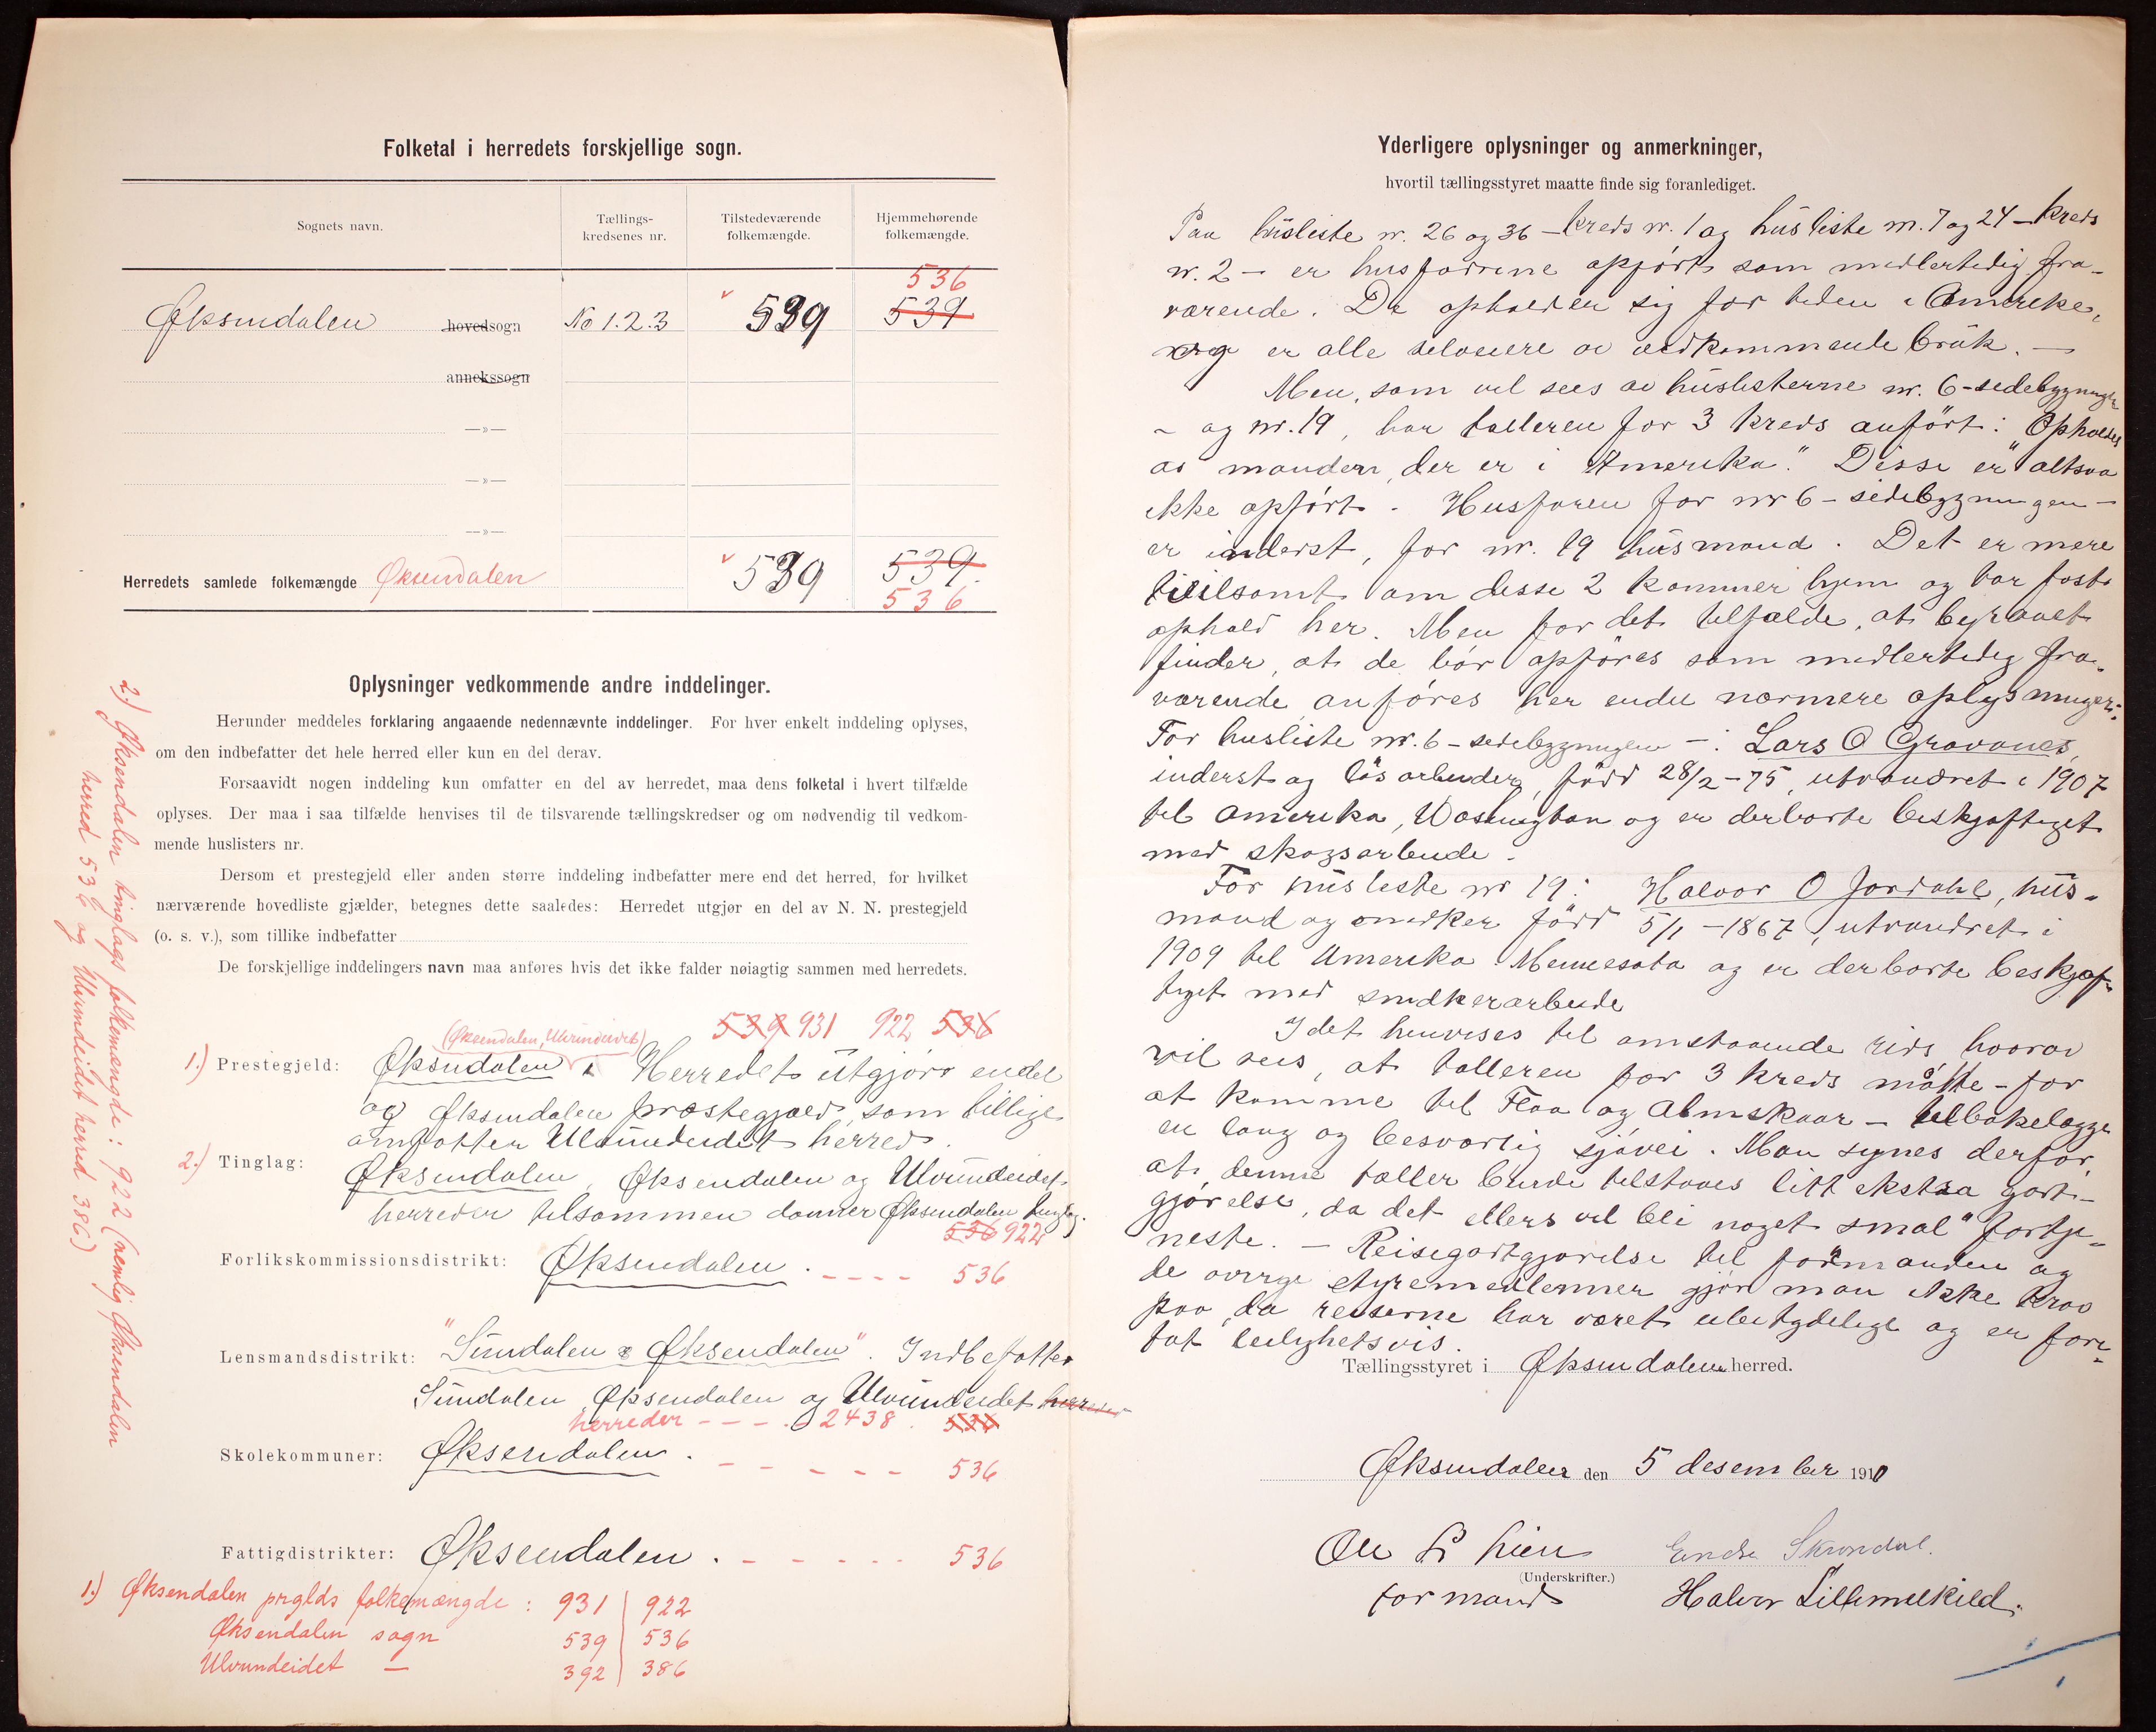 Folketal i herredets forskjellige sogn.
Sognets navn.
Tællings-
kredsenes nr.
Tilstedeværende
folkemængde.
Hjemmehørende
folkemængde.
536
Øksendalen hovedsogn No 1.2.3 539 539
annekssogn
—»—
—»—
—»—
Herredets samlede folkemængde Øksendalen 539 539
536
Oplysninger vedkommende andre inddelinger.
Herunder meddeles forklaring angaaende nedennævnte inddelinger. For hver enkelt inddeling oplyses,
om den indbefatter det hele herred eller kun en del derav.
Forsaavidt nogen inddeling kun omfatter en del av herredet, maa dens folketal i hvert tilfælde
oplyses. Der maa i saa tilfælde henvises til de tilsvarende tællingskredser og om nødvendig til vedkom-
mende huslisters nr.
Dersom et prestegjeld eller anden større inddeling indbefatter mere end det herred, for hvilket
nærværende hovedliste gjælder, betegnes dette saaledes: Herredet utgjør en del av N. N. prestegjeld
(o. s. v.), som tillike indbefatter
De forskjellige inddelingers navn maa anføres hvis det ikke falder nøiagtig sammen med herredets.
(Øksendalen, Ulvundeidet) 539 931 922 536
1.) Prestegjeld: Øksndalen Herredet utgjør endel
av Øksendalen præstegjæld, som tillige
omfatter Ulvundeidet herred.
2.) Tinglag: Øksendalen, Øksendalen og Ulvundeidet
herreder tilsammen danner Øksendalen tinglag.
536 922
Forlikskommissionsdistrikt: Øksendalen. - - - - 536
Lensmandsdistrikt: "Sundalen & Øksendalen". Indbefatter
Sundalen, Øksendalen og Ulvundeidet herreder
herreder - - - . 2438. 536
Skolekommuner: Øksendalen. - - - - - 536
Fattigdistrikter: Øksendalen. - - - - - 536
1.) Øksendalen prglds folkemængde: 931 | 922
Øksendalen sogn 539 | 536
Ulvundeidet — 392 | 386
2.) Øksendalen tinglags folkemængde: 922 (nemlig Øksendalen
herred 536 og Ulvundeidet herred 386)
Yderligere oplysninger og anmerkninger,
hvortil tællingsstyret maatte finde sig foranlediget.
Paa husliste nr. 26 og 36 – kreds nr. 1 og husliste nr. 7 og 24 – kreds
nr. 2 – er husfædrene opført som midlertidig fra-
værende. De opholder sig for tiden i Amerika,
og er alle selveiere av vedkommende bruk. —
Men, som vil sees av huslisterne nr. 6 – sidebygningen
– og nr. 19, har tælleren for 3 kreds anført: "Opholdes
av manden, der er i Amerika." Disse er altsaa
ikke opført. Husfaren for nr 6 – sidebygningen –
er inderst, for nr. 19 husmand. Det er mere
tvilsomt om disse 2 kommer hjem og tar fast
ophold her. Men for det tilfælde, at byraaet
finder, at de bør opføres som midlertidig fra-
værende anføres her endu nærmere oplysninger:
For husliste nr. 6 – sidebygningen –: Lars O Gravanes,
inderst og løsarbeider, født 28/2–75, utvandret i 1907
til Amerika, Washington og er derborte beskjæftiget
med skogsarbeide.
For husliste nr 19: Halvor O Jordahl, hus-
mand og snedker født 5/1–1867, utvandret i
1909 til Amerika Mennesota og er derborte beskjæf-
tiget med snedkerarbeide
Idet henvises til omstaaende rids, hvorav
vil sees, at tælleren for 3 kreds måtte – for
at komme til Flaa og Almskaar – tilbakelægge
en lang og besværlig sjøvei. Man synes derfor,
at denne tæller burde tilstaaes litt ekstra godt-
gjørelse, da det ellers vil bli noget smal" fortje-
neste. – Reisegodtgjørelse til formanden og
de øvrige styremedlemmer gjør man ikke krav
paa, da reiserne har været ubetydelige og er fore-
tat leilighetsvis.
Tællingsstyret i Øksendalen herred.
Øksendalen den 5 desember 1910
Ole L Lien Endre Skrondal.
(Underskrifter.)
formand Halvor Lillemelkild.